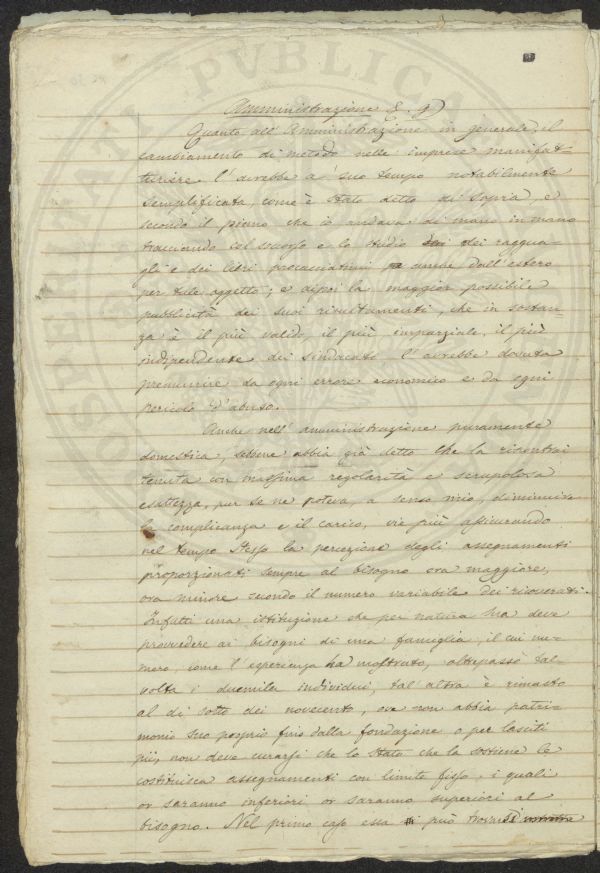 Amministrazione §. 9
Quanto all'Amministrazione in generale, il
cambiamento di metodo nelle imprese manifat=
turiere l'avrebbe a suo tempo notabilmente
semplificata, come è stato detto di sopra, e
secondo il piano che io andava di mano in mano
tracciando col soccorso e lo studio dei raggua=
gli e dei libri procacciatimi anche dall'estero
per tale oggetto; e dipoi la maggior possibile
pubblicità dei suoi risultamenti, che in sostan=
za è il più valido, il più imparziale, il più
indipendente dei sindacati l'avrebbe dovuta
premunire da ogni errore economico e da ogni
pericolo d'abuso.
Anche nell'amministrazione puramente
domestica, sebbene abbia già detto che la riscontrai
tenuta con massima regolarità e scrupolosa
esattezza, pur se ne poteva, a senso mio, diminuire
la complicanza e il carico, vie più assicurando
nel tempo stesso la percezione degli assegnamenti
proporzionati sempre al bisogno ora maggiore,
ora minore secondo il numero variabile dei ricoverati.
Infatti una istituzione che per natura sua deve
provvedere ai bisogni di una famiglia, il cui nu=
mero, come l'esperienza ha mostrato, oltrepassò tal=
volta i duemila individui, tal'altra è rimasto
al di sotto dei novecento, ove non abbia patri=
monio suo proprio fino dalla fondazione o per lasciti
pii, non deve curarsi che lo Stato che la sostiene le
costituisca assegnamenti con limite fisso, i quali
or saranno inferiori or saranno superiori al
bisogno. Nel primo caso essa può trovarsi
PUBLICA